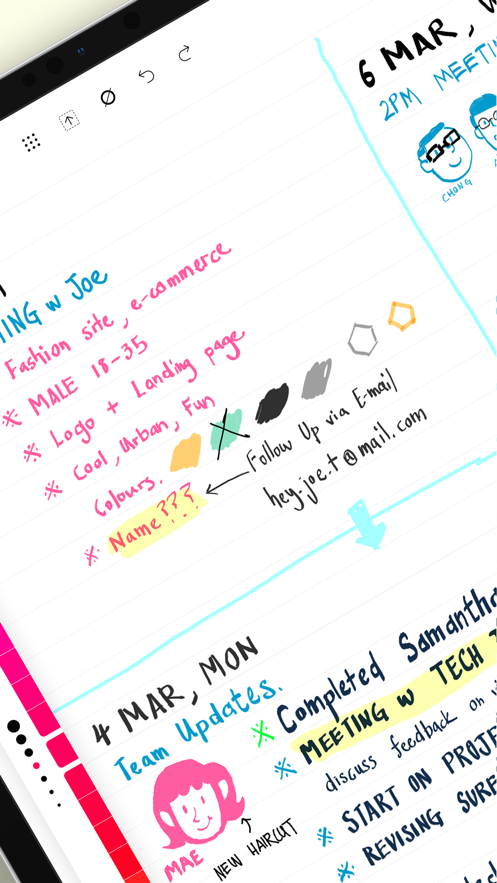 6 MAR,
2PM MEETIN
CHONG
ING w Joe
Fashion site, e-commerce
※ MALE 18-35
※ Logo + Landing page
※ Cool, Urban, Fun
Colours.
※ Name???
Follow Up via E-mail
hey.joe.t@mail.com
4 MAR, MON
Team Updates.
MAE
NEW HAIRCUT
※ Completed Samantha
※ MEETING w TECH
discuss feedback on
※ START ON PROJE
※ REVISING SURF